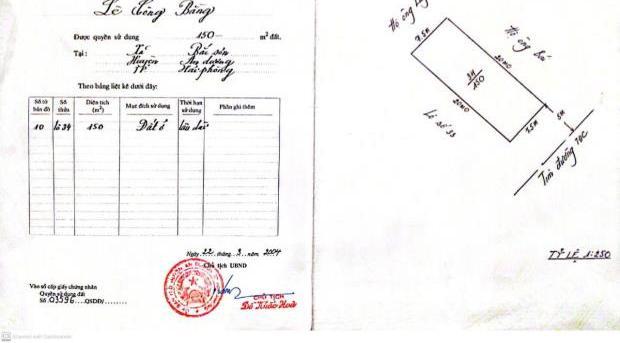 Lê Công Bằng
Được quyền sử dụng 150 m² đất.
Tại: Xã Bắc Sơn
Huyện An dương
TP Hải phòng
Theo bảng liệt kê dưới đây:
Số tờ bản đồ | Số thửa | Diện tích (m²) | Mục đích sử dụng | Thời hạn sử dụng | Phần ghi thêm
10 | lô 34 | 150 | Đất ở | lâu dài
Ngày 22 tháng 3 năm 2004
Chủ tịch UBND
Vào sổ cấp giấy chứng nhận
Quyền sử dụng đất
Số 03596 QSDĐ/
CHỦ TỊCH
Đỗ Xuân Hoà
Hộ ông
Hộ ông
7.5M
20M0
34
150
20M0
lô số 33
7.5M
5M
Tim đường
TỶ LỆ 1:250
Scanned with CamScanner